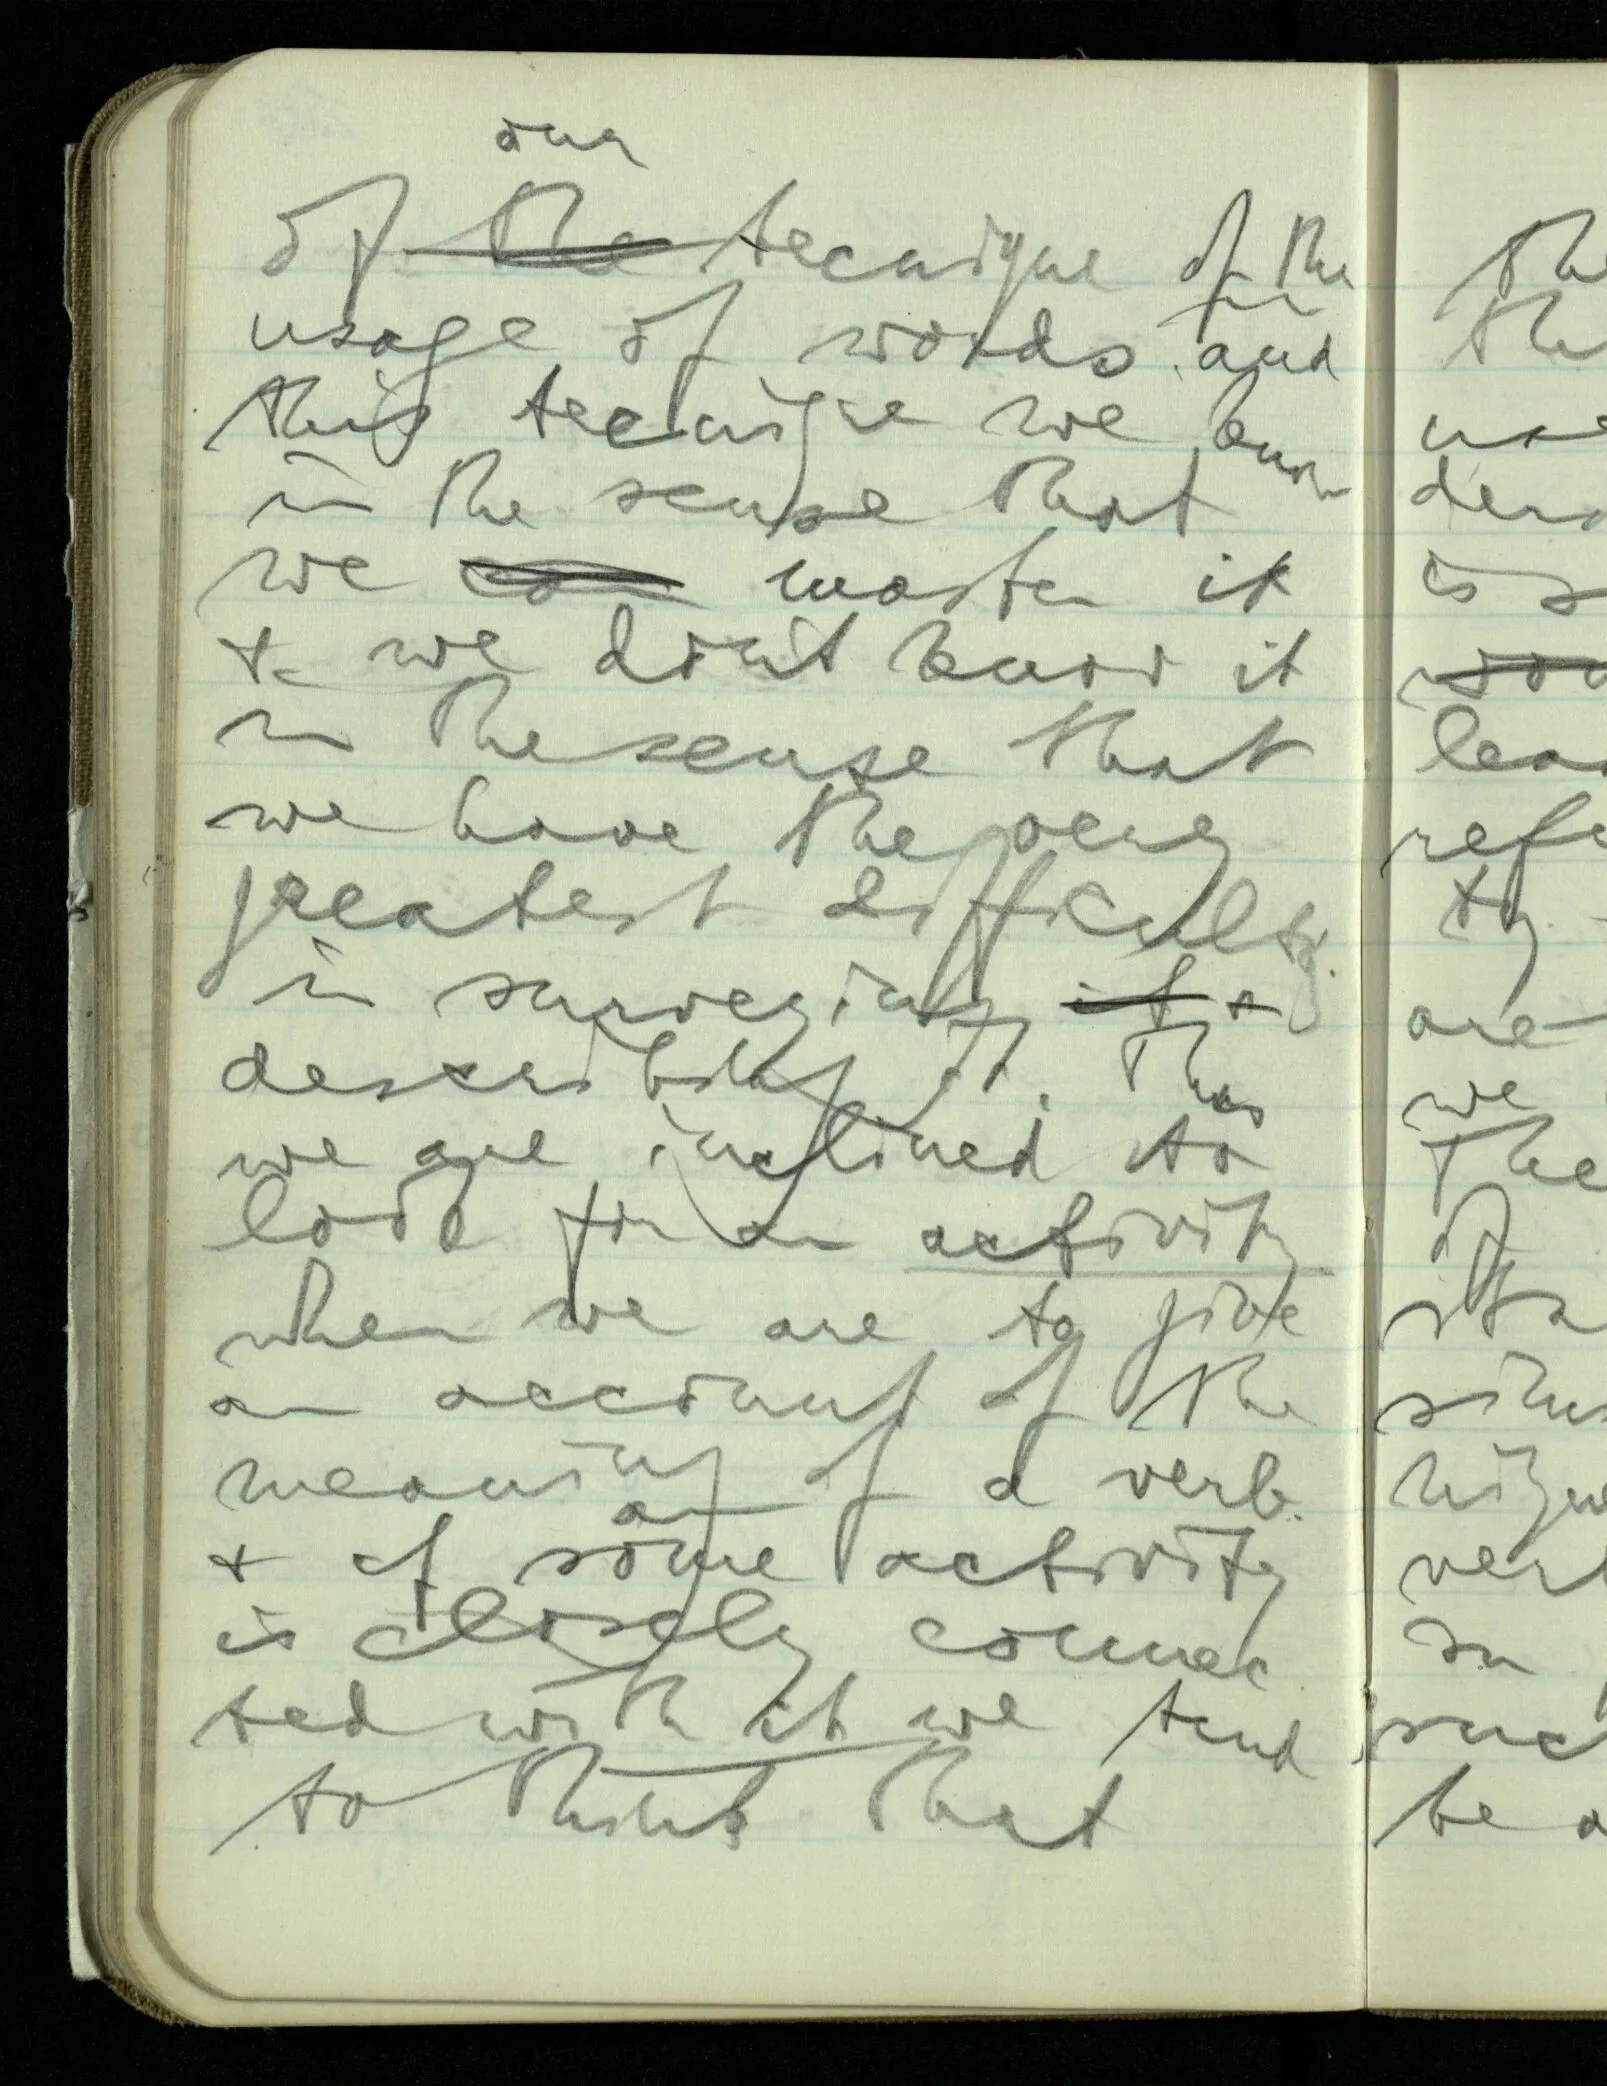 our
of the tecnique of the
usage of words and
this tecnique we know
in the sense that
we can master it
& we don't know it
in the sense that
we have the very
greatest difficulty
in surveying it &
describing it. Thus
we are inclined to
look for an activity
when we are to give
an account of the
meaning of a verb
an
& if some activity
is closely connec
ted with it we tend
to think that